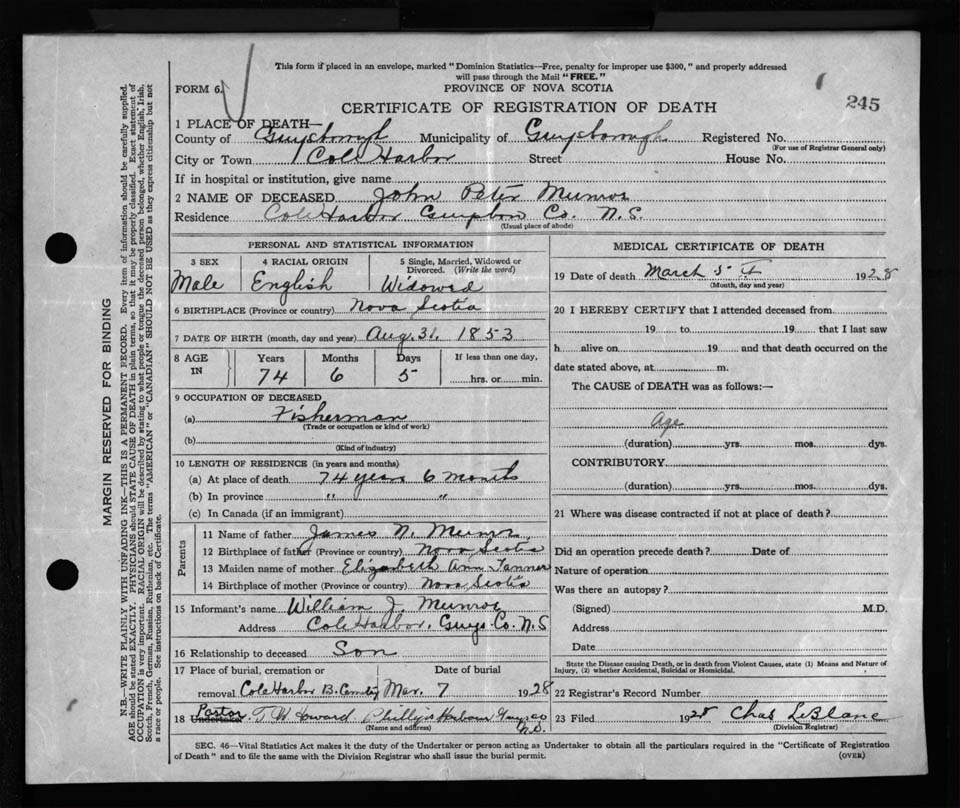 This form if placed in an envelope, marked "Dominion Statistics—Free, penalty for improper use $300," and properly addressed
will pass through the Mail "FREE."
FORM 6.
PROVINCE OF NOVA SCOTIA
245
CERTIFICATE OF REGISTRATION OF DEATH
1 PLACE OF DEATH—
County of Guysborough Municipality of Guysborough Registered No.
(For use of Registrar General only)
City or Town Cole Harbor Street House No.
If in hospital or institution, give name
2 NAME OF DECEASED John Peter Munroe
Residence Cole Harbor Co. N.S.
(Usual place of abode)
PERSONAL AND STATISTICAL INFORMATION
3 SEX
Male
4 RACIAL ORIGIN
English
5 Single, Married, Widowed or
Divorced. (Write the word)
Widowed
6 BIRTHPLACE (Province or country) Nova Scotia
7 DATE OF BIRTH (month, day and year) Aug. 31, 1853
8 AGE IN
Years Months Days If less than one day,
74 6 5 hrs. or min.
9 OCCUPATION OF DECEASED
(a) Fisherman
(Trade or occupation or kind of work)
(b)
(Kind of industry)
10 LENGTH OF RESIDENCE (in years and months)
(a) At place of death 74 years 6 months
(b) In province " "
(c) In Canada (if an immigrant)
Parents
11 Name of father James N. Munroe
12 Birthplace of father (Province or country) Nova Scotia
13 Maiden name of mother Elizabeth Ann Tanner
14 Birthplace of mother (Province or country) Nova Scotia
15 Informant's name William J. Munroe
Address Cole Harbor, Guys. Co. N.S
16 Relationship to deceased Son
17 Place of burial, cremation or Date of burial
removal Cole Harbor B. Mar. 7 1928
18 Pastor Undertaker T W Howard Phillips Harbour Guys co
(Name and address) N.S.
MEDICAL CERTIFICATE OF DEATH
19 Date of death March 5 1928
(Month, day and year)
20 I HEREBY CERTIFY that I attended deceased from
19 to 19 that I last saw
h alive on 19 and that death occurred on the
date stated above, at m.
The CAUSE of DEATH was as follows:—
Age
(duration) yrs. mos. dys.
CONTRIBUTORY
(duration) yrs. mos. dys.
21 Where was disease contracted if not at place of death?
Did an operation precede death? Date of
Nature of operation
Was there an autopsy?
(Signed) M.D.
Address
Date
State the Disease causing Death, or in death from Violent Causes, state (1) Means and Nature of
Injury, (2) whether Accidental, Suicidal or Homicidal.
22 Registrar's Record Number
23 Filed 1928 Chas LeBlanc
(Division Registrar)
SEC. 46—Vital Statistics Act makes it the duty of the Undertaker or person acting as Undertaker to obtain all the particulars required in the "Certificate of Registration
of Death" and to file the same with the Division Registrar who shall issue the burial permit.
(OVER)
MARGIN RESERVED FOR BINDING
N.B.—WRITE PLAINLY WITH UNFADING INK—THIS IS A PERMANENT RECORD. Every item of information should be carefully supplied.
AGE should be stated EXACTLY. PHYSICIANS should STATE CAUSE OF DEATH in plain terms, so that it may be properly classified. Exact statement of
OCCUPATION is very important. RACIAL ORIGIN will be described by stating to what people or tongue the deceased person belonged, whether English, Irish,
Scotch, French, German, Russian, Ruthenian, etc. The terms "AMERICAN" or "CANADIAN" SHOULD NOT BE USED as they express citizenship but not
a race or people. See instructions on back of Certificate.